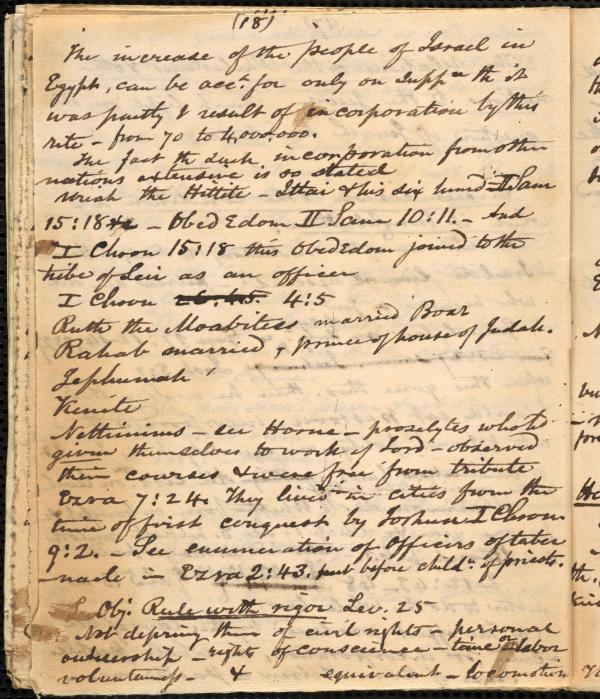 (18)
The increase of the people of Israel in
Egypt, can be acct. for only on suppn th it
was partly & result of incorporation by this
rite - from 70 to 4,000,000.
The fact th such incorporation from other
nations extensive is so stated
Uriah the Hittite - Ittai & his six hund II Sam
15:18 - Obed Edom II Sam 10:11. - And
I Chron 15:18 this Obed Edom joined to the
tribe of Levi as an officer
I Chron 26:45. 4:5
Ruth the Moabitess married Boaz
Rahab married, prince of house of Judah.
Jephunah
Kenite
Nethinims - see Horne - proselytes who had
given themselves to work of Lord - observed
their courses & were free from tribute
Ezra 7:24. They lived in cities from the
time of first conquest by Joshua I Chron.
9:2. - See enumeration of Officers of taber
nacle in Ezra 2:43. put before childn. of priests.
Obj. Rule with rigor Lev. 25
Not depring them of civil rights - personal
ownership - rights of conscience - time or labor
voluntariness - & equivalent - locomotion